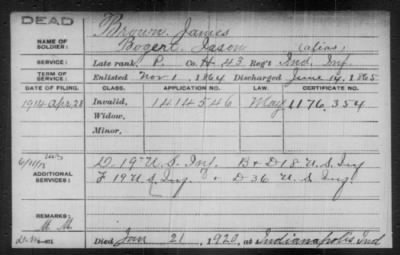 DEAD
NAME OF SOLDIER: Brown, James
Bogert, Jason (alias)
SERVICE: Late rank, P. Co. H. 43 Reg't Ind. Inf.
TERM OF SERVICE: Enlisted Nov. 1, 1864 Discharged June 14, 1865
DATE OF FILING. CLASS. APPLICATION NO. LAW. CERTIFICATE NO.
1914 Apr. 28 Invalid, 1414546 May 1176.354
Widow,
Minor,
ADDITIONAL SERVICES: D. 19" U.S. Inf. B + D 18 U.S. Inf
F 19 U.S. Inf. & D 36 U.S. Inf.
REMARKS: M. M.
Died Jan 21, 1920, at Indianapolis Ind